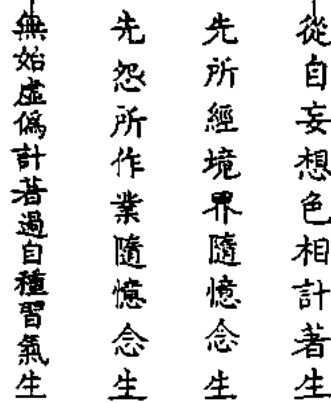 從自妄想色相計著生
先所經境界隨憶念生
先怨所作業隨憶念生
無始虛偽計著過自種習氣生